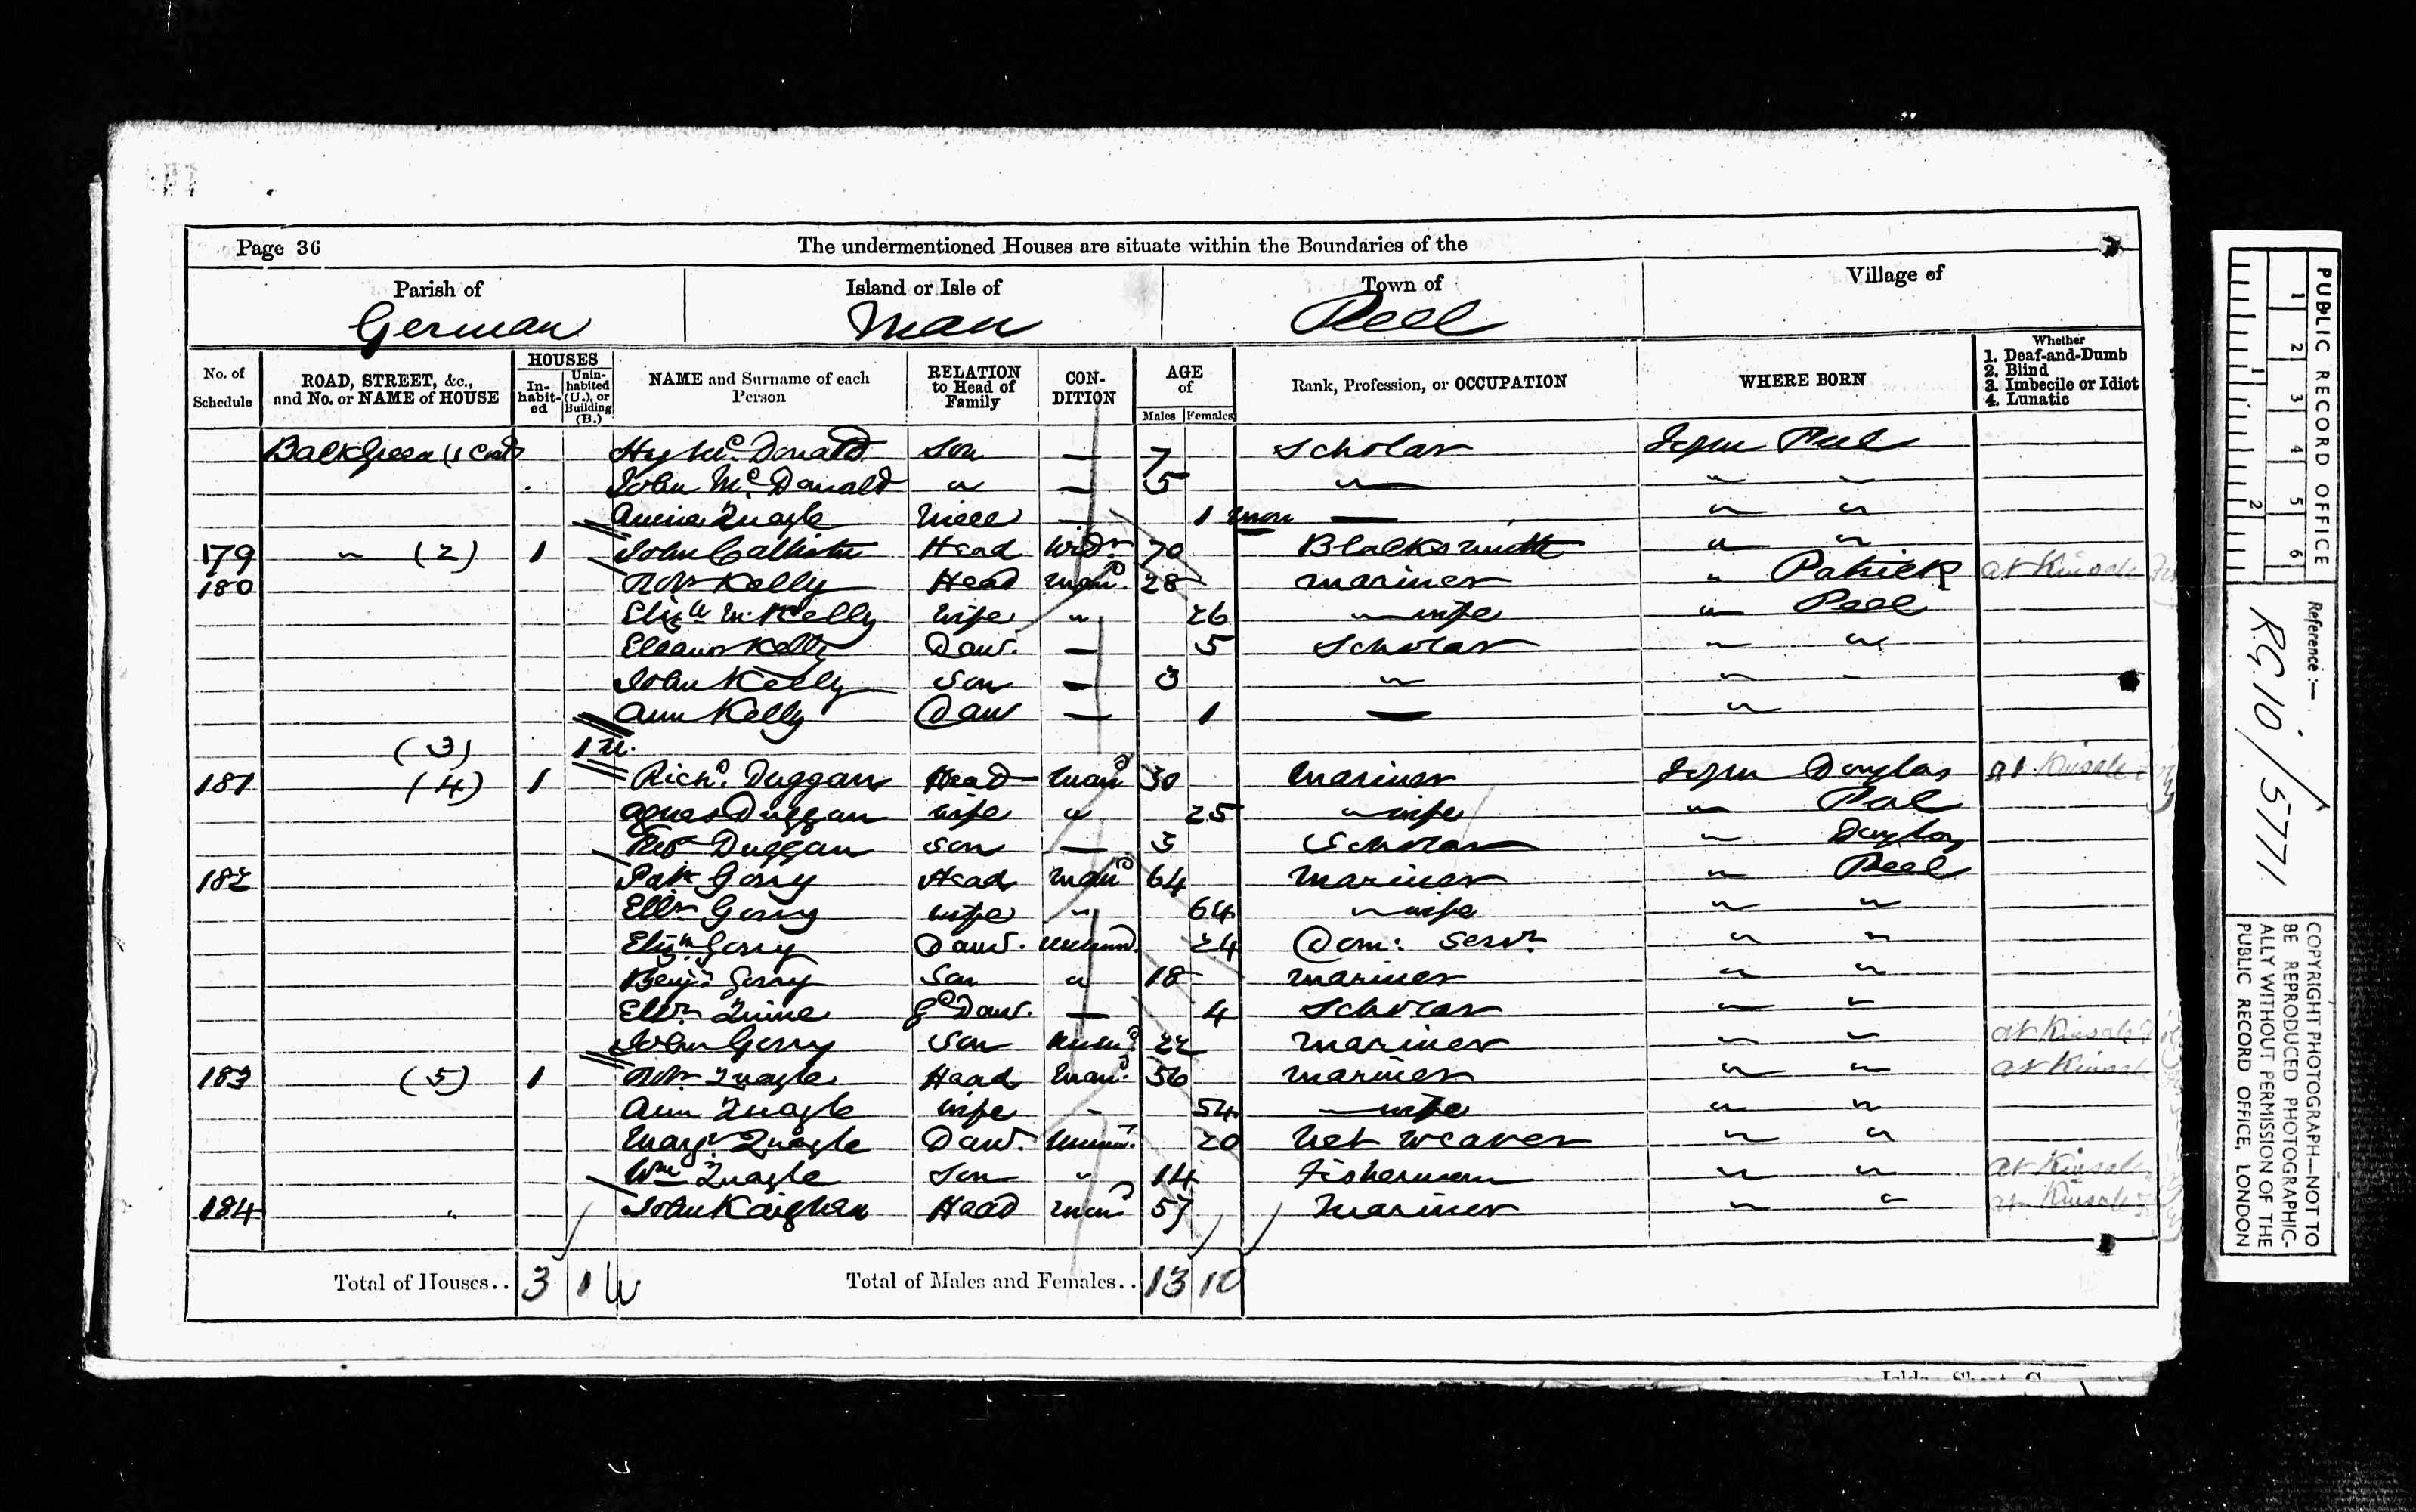 Page 36 The undermentioned Houses are situate within the Boundaries of the
Parish of Island or Isle of Town of Village of
German Man Peel
No. of Schedule ROAD, STREET, &c., and No. or NAME of HOUSE HOUSES In-habit-ed Unin-habited (U.), or Building (B.) NAME and Surname of each Person RELATION to Head of Family CON-DITION AGE of Males Females Rank, Profession, or OCCUPATION WHERE BORN Whether 1. Deaf-and-Dumb 2. Blind 3. Imbecile or Idiot 4. Lunatic
Back Green (1 Contd Hy Mc. Donald Son — 7 Scholar Peel
John Mc. Donald " — 5 " " "
Quayle Niece — 1 mon — " "
179 " (2) 1 John Callister Head Widr 70 Blacksmith " "
180 Robt Kelly Head Mard 28 Mariner " Patrick at Kinsale
Eliza M. Kelly Wife " 26 " wife " Peel
Eleanor Kelly Daur. — 5 Scholar " "
John Kelly Son — 3 " " "
Ann Kelly Daur — 1 — "
(3) 1 U.
181 (4) 1 Richd. Duggan Head Mard 30 Mariner Douglas at Kinsale
Agnes Duggan Wife " 25 " wife " Peel
Duggan Son — 3 Scholar " Douglas
182 Patk Gorry Head Mard 64 Mariner " Peel
Ellr Gorry Wife " 64 " wife " "
Elizth Gorry Daur. Unmd. 24 Dom: Servt " "
Benjn Gorry Son " 18 Mariner " "
Quine Gd Daur. — 4 Scholar " "
John Gorry Son Unmd 22 Mariner " " at Kinsale
183 (5) 1 Robt Quayle Head Mard 56 Mariner " " at Kinsale
Ann Quayle Wife " 54 " wife " "
Margt Quayle Daur. Unmd. 20 Net Weaver " "
Wm Quayle Son " 14 Fisherman " " at Kinsale
184 " John Kaighen Head Mard 57 Mariner " " at Kinsale
Total of Houses.. 3 1 U Total of Males and Females.. 13 10
PUBLIC RECORD OFFICE
1 2 3 4 5 6
1 2
Reference:—
R.G. 10/5771
COPYRIGHT PHOTOGRAPH—NOT TO BE REPRODUCED PHOTOGRAPHIC-ALLY WITHOUT PERMISSION OF THE PUBLIC RECORD OFFICE, LONDON